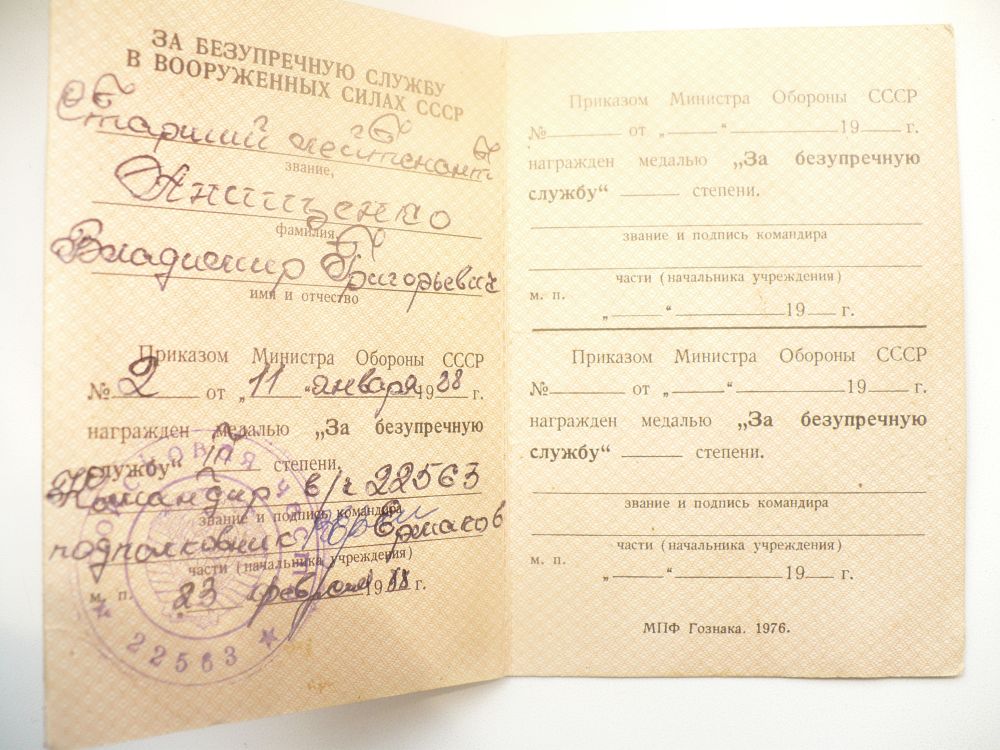 ЗА БЕЗУПРЕЧНУЮ СЛУЖБУ
В ВООРУЖЕННЫХ СИЛАХ СССР
Старший лейтенант
звание,
Анищенко
фамилия,
Владимир Григорьевич
имя и отчество
Приказом Министра Обороны СССР
№ 2 от „11“ января 1988 г.
награжден медалью „За безупречную
службу“ степени.
Командир в/ч 22563
звание и подпись командира
подполковник Ермаков
части (начальника учреждения)
м. п. 23 февраля 1988 г.
ВОЙСКОВАЯ ЧАСТЬ
22563
Приказом Министра Обороны СССР
№ от „ “ 19 г.
награжден медалью „За безупречную
службу“ степени.
звание и подпись командира
части (начальника учреждения)
м. п.
„ “ 19 г.
Приказом Министра Обороны СССР
№ от „ “ 19 г.
награжден медалью „За безупречную
службу“ степени.
звание и подпись командира
части (начальника учреждения)
м. п.
„ “ 19 г.
МПФ Гознака. 1976.